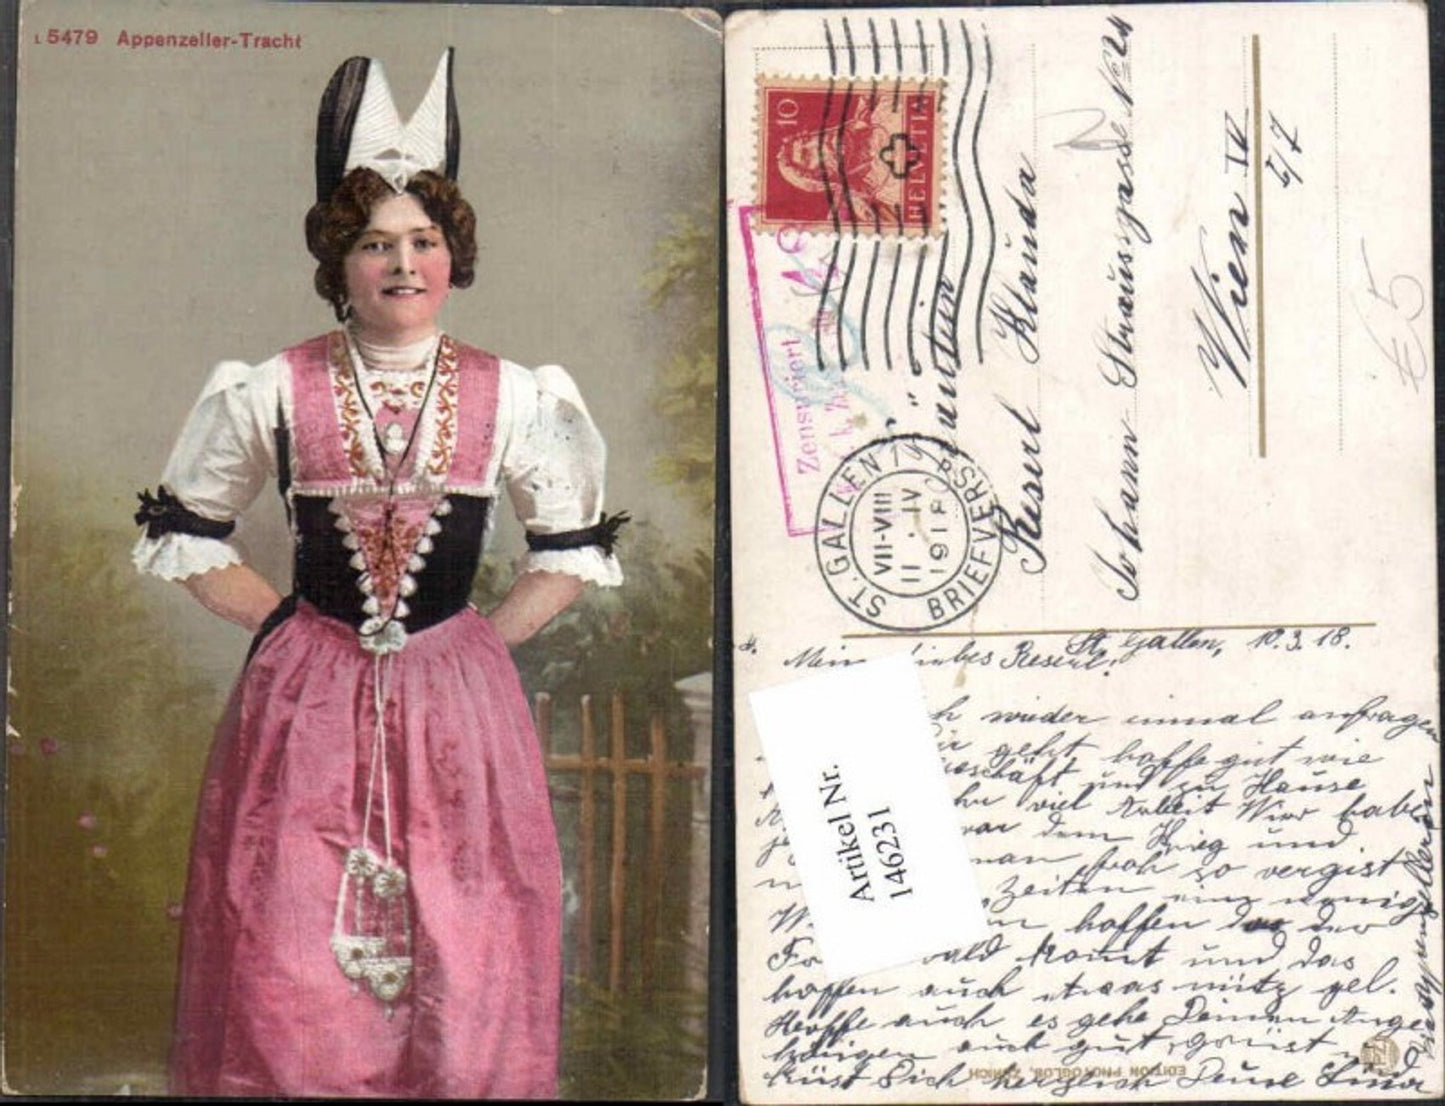 L 5479 Appenzeller-Tracht
10
HELVETIA
Zensuriert
ST. GALLEN 19
VII-VIII
11 . IV
1918
BRIEFVERS
Fräulein
Reserl Klauda
Johann-Straussgasse No 24
Wien IV
5/7
€ 5
St. Gallen, 10.3.18.
Mein liebes Reserl!
wieder einmal anfragen
geht hoffe gut wie
Geschäft und zu Hause
viel Arbeit Wir habe
dem Krieg und
man froh so vergist
Zeiten ein wenig
hoffen das der
bald komt und das
hoffen auch etwas nütz gel.
Hoffe auch es gehe Deinen Ange
hörigen auch gut, grüsst
küst Dich herzlich Deine
Appenzellerin
Artikel Nr.
146231
EDITION PHOTOGLOB, ZÜRICH